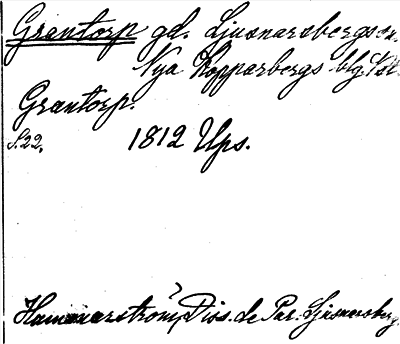 Grantorp gd. Ljusnarsbergs sn.
Nya Kopparbergs blg. Vstl.
Grantorp.
S.22. 1812 Ups.
Hammarström, Diss. de Par. Ljusnarsberg.